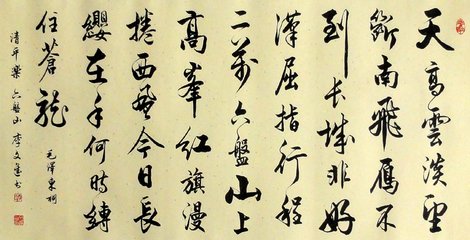 天高雲淡望
斷南飛雁不
到長城非好
漢屈指行程
二萬六盤山上
高峯紅旗漫
捲西風今日長
纓在手何時縛
住蒼龍
毛澤東詞
清平樂 六盤山 李文書